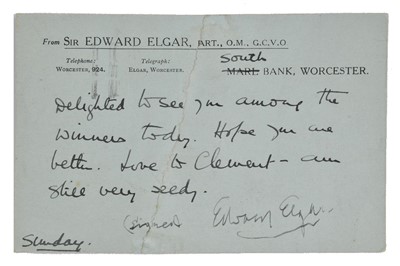 From SIR EDWARD ELGAR, BART., O.M., G.C.V.O
Telephone: Telegraph: South
WORCESTER, 924. ELGAR, WORCESTER. MARL BANK, WORCESTER.
Delighted to see you among the
winners today. Hope you are
better. Love to Clement - am
still very seedy.
(signed Edward Elgar.
Sunday.